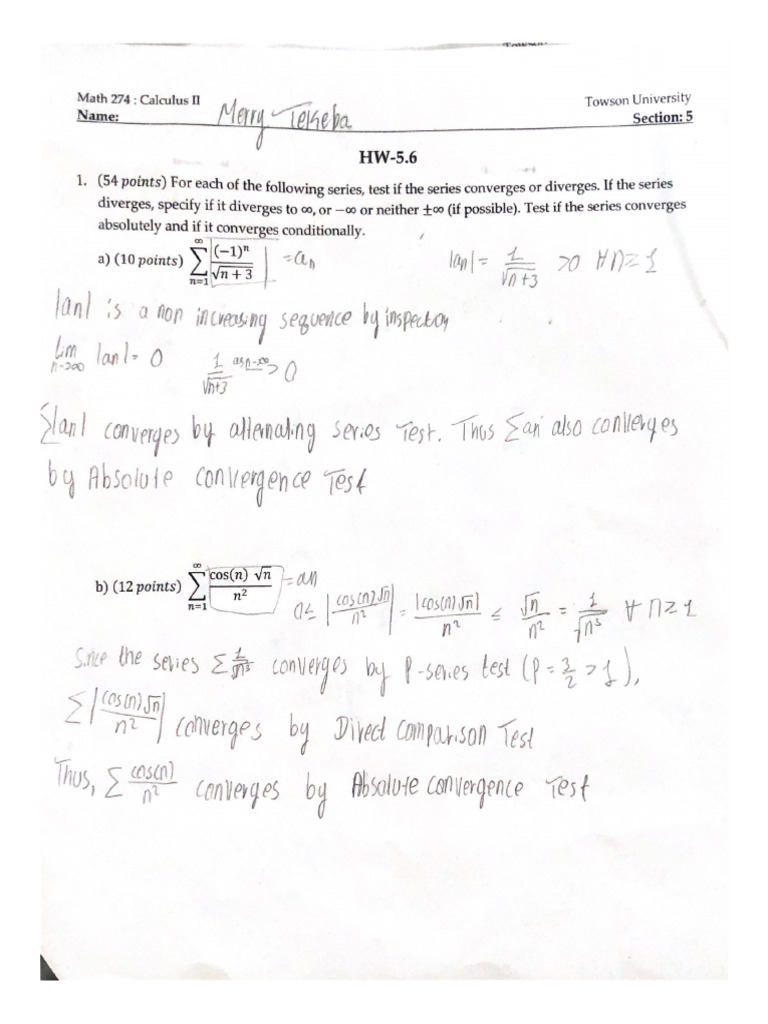 Math 274 : Calculus II
Towson University
Name: Merry Tekeba
Section: 5
HW-5.6
1. (54 points) For each of the following series, test if the series converges or diverges. If the series
diverges, specify if it diverges to ∞, or −∞ or neither ±∞ (if possible). Test if the series converges
absolutely and if it converges conditionally.
a) (10 points) ∑_{n=1}^{∞} (-1)^n / √(n + 3) = a_n
|an| = 1/√(n+3) >0 ∀ n≥1
|an| is a non increasing sequence by inspection
Lim n→∞ |an| = 0 1/√(n+3) as n→∞ > 0
∑|an| converges by alternating series Test. Thus ∑an also converges
by Absolute convergence Test
b) (12 points) ∑_{n=1}^{∞} cos(n) √n / n² = an
0≤ |cos(n)√n / n²| = |cos(n)√n| / n² ≤ √n / n² = 1/√n³ ∀ n≥1
Since the series ∑ 1/√n³ converges by P-series test (P = 3/2 > 1),
∑|cos(n)√n / n²| converges by Direct Comparison Test
Thus, ∑ cos(n) / n² converges by Absolute convergence Test